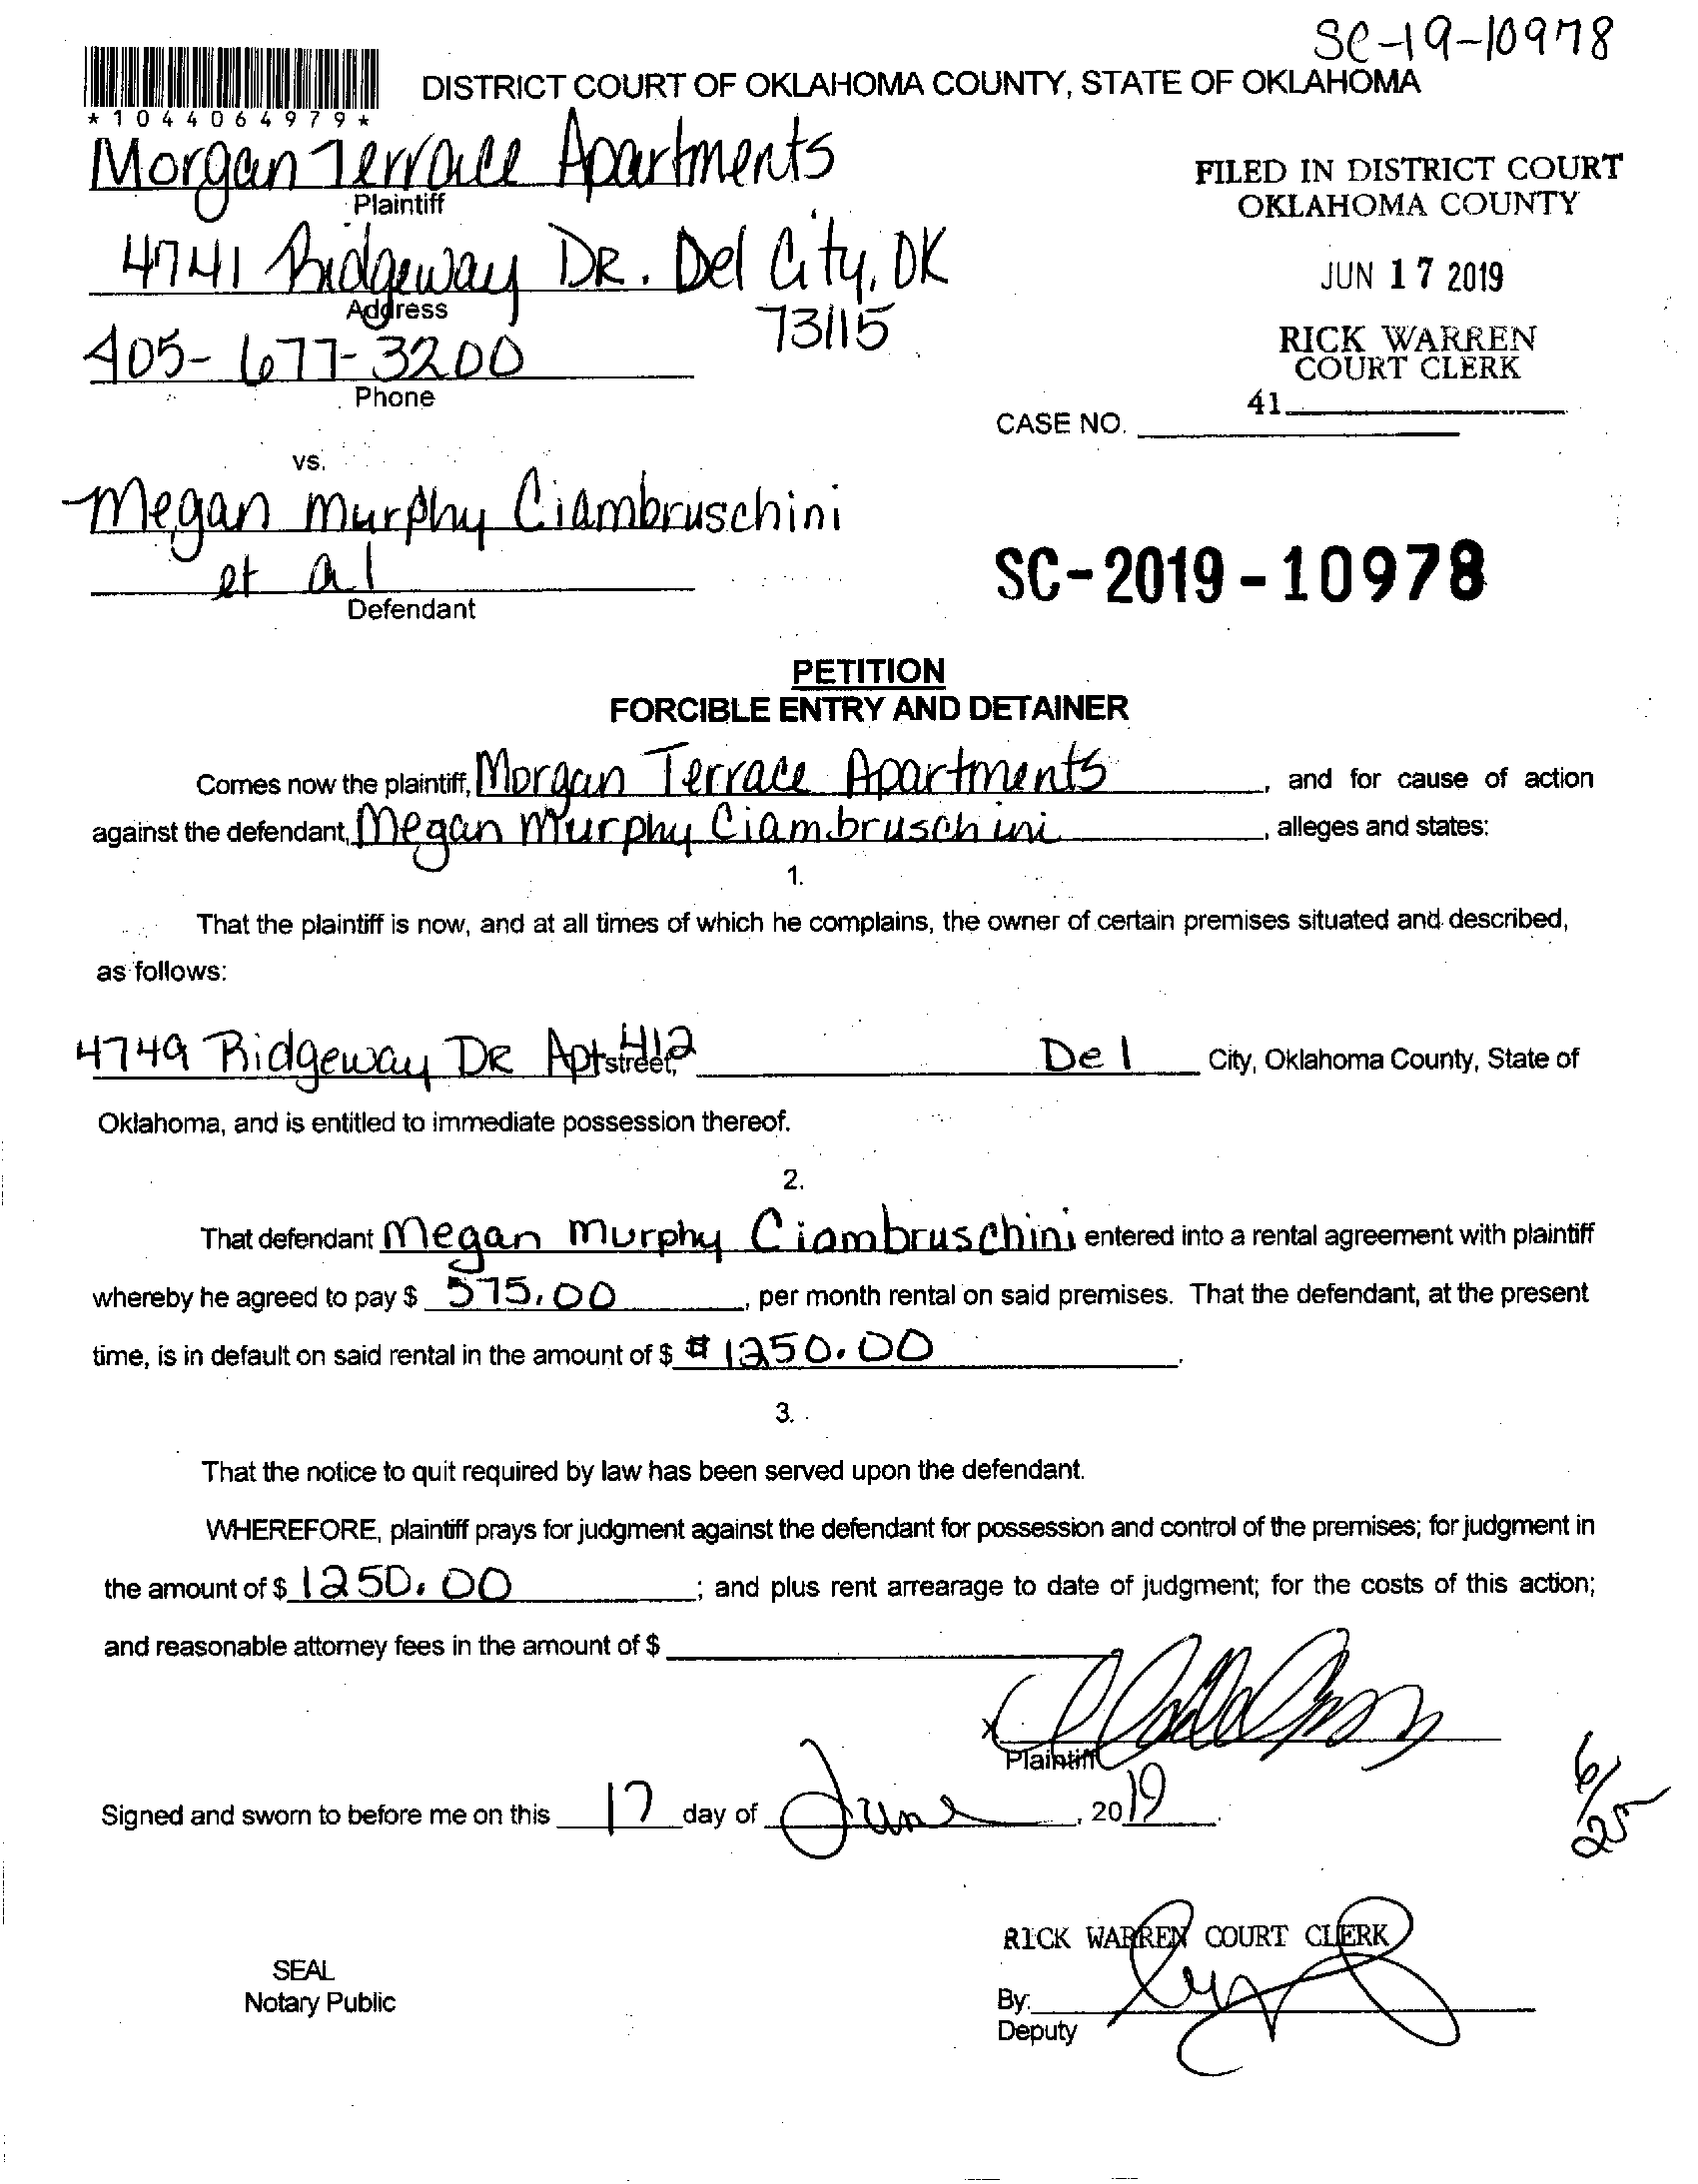 SC-19-10978
DISTRICT COURT OF OKLAHOMA COUNTY, STATE OF OKLAHOMA
*1044064979*
Morgan Terrace Apartments
Plaintiff
FILED IN DISTRICT COURT
OKLAHOMA COUNTY
4741 Ridgeway DR. Del City, OK
73115
Address
JUN 17 2019
405-677-3200
Phone
RICK WARREN
COURT CLERK
41
CASE NO.
vs.
Megan Murphy Ciambruschini
et al
Defendant
SC-2019-10978
PETITION
FORCIBLE ENTRY AND DETAINER
Comes now the plaintiff, Morgan Terrace Apartments, and for cause of action
against the defendant, Megan Murphy Ciambruschini, alleges and states:
1.
That the plaintiff is now, and at all times of which he complains, the owner of certain premises situated and described,
as follows:
4749 Ridgeway DR Apt 412 street, Del City, Oklahoma County, State of
Oklahoma, and is entitled to immediate possession thereof.
2.
That defendant Megan Murphy Ciambruschini entered into a rental agreement with plaintiff
whereby he agreed to pay $ 575.00, per month rental on said premises. That the defendant, at the present
time, is in default on said rental in the amount of $ $1250.00.
3.
That the notice to quit required by law has been served upon the defendant.
WHEREFORE, plaintiff prays for judgment against the defendant for possession and control of the premises; for judgment in
the amount of $ 1250.00; and plus rent arrearage to date of judgment; for the costs of this action;
and reasonable attorney fees in the amount of $
x
Plaintiff
Signed and sworn to before me on this 17 day of June, 2019.
6/25
RICK WARREN COURT CLERK
SEAL
Notary Public
By:
Deputy